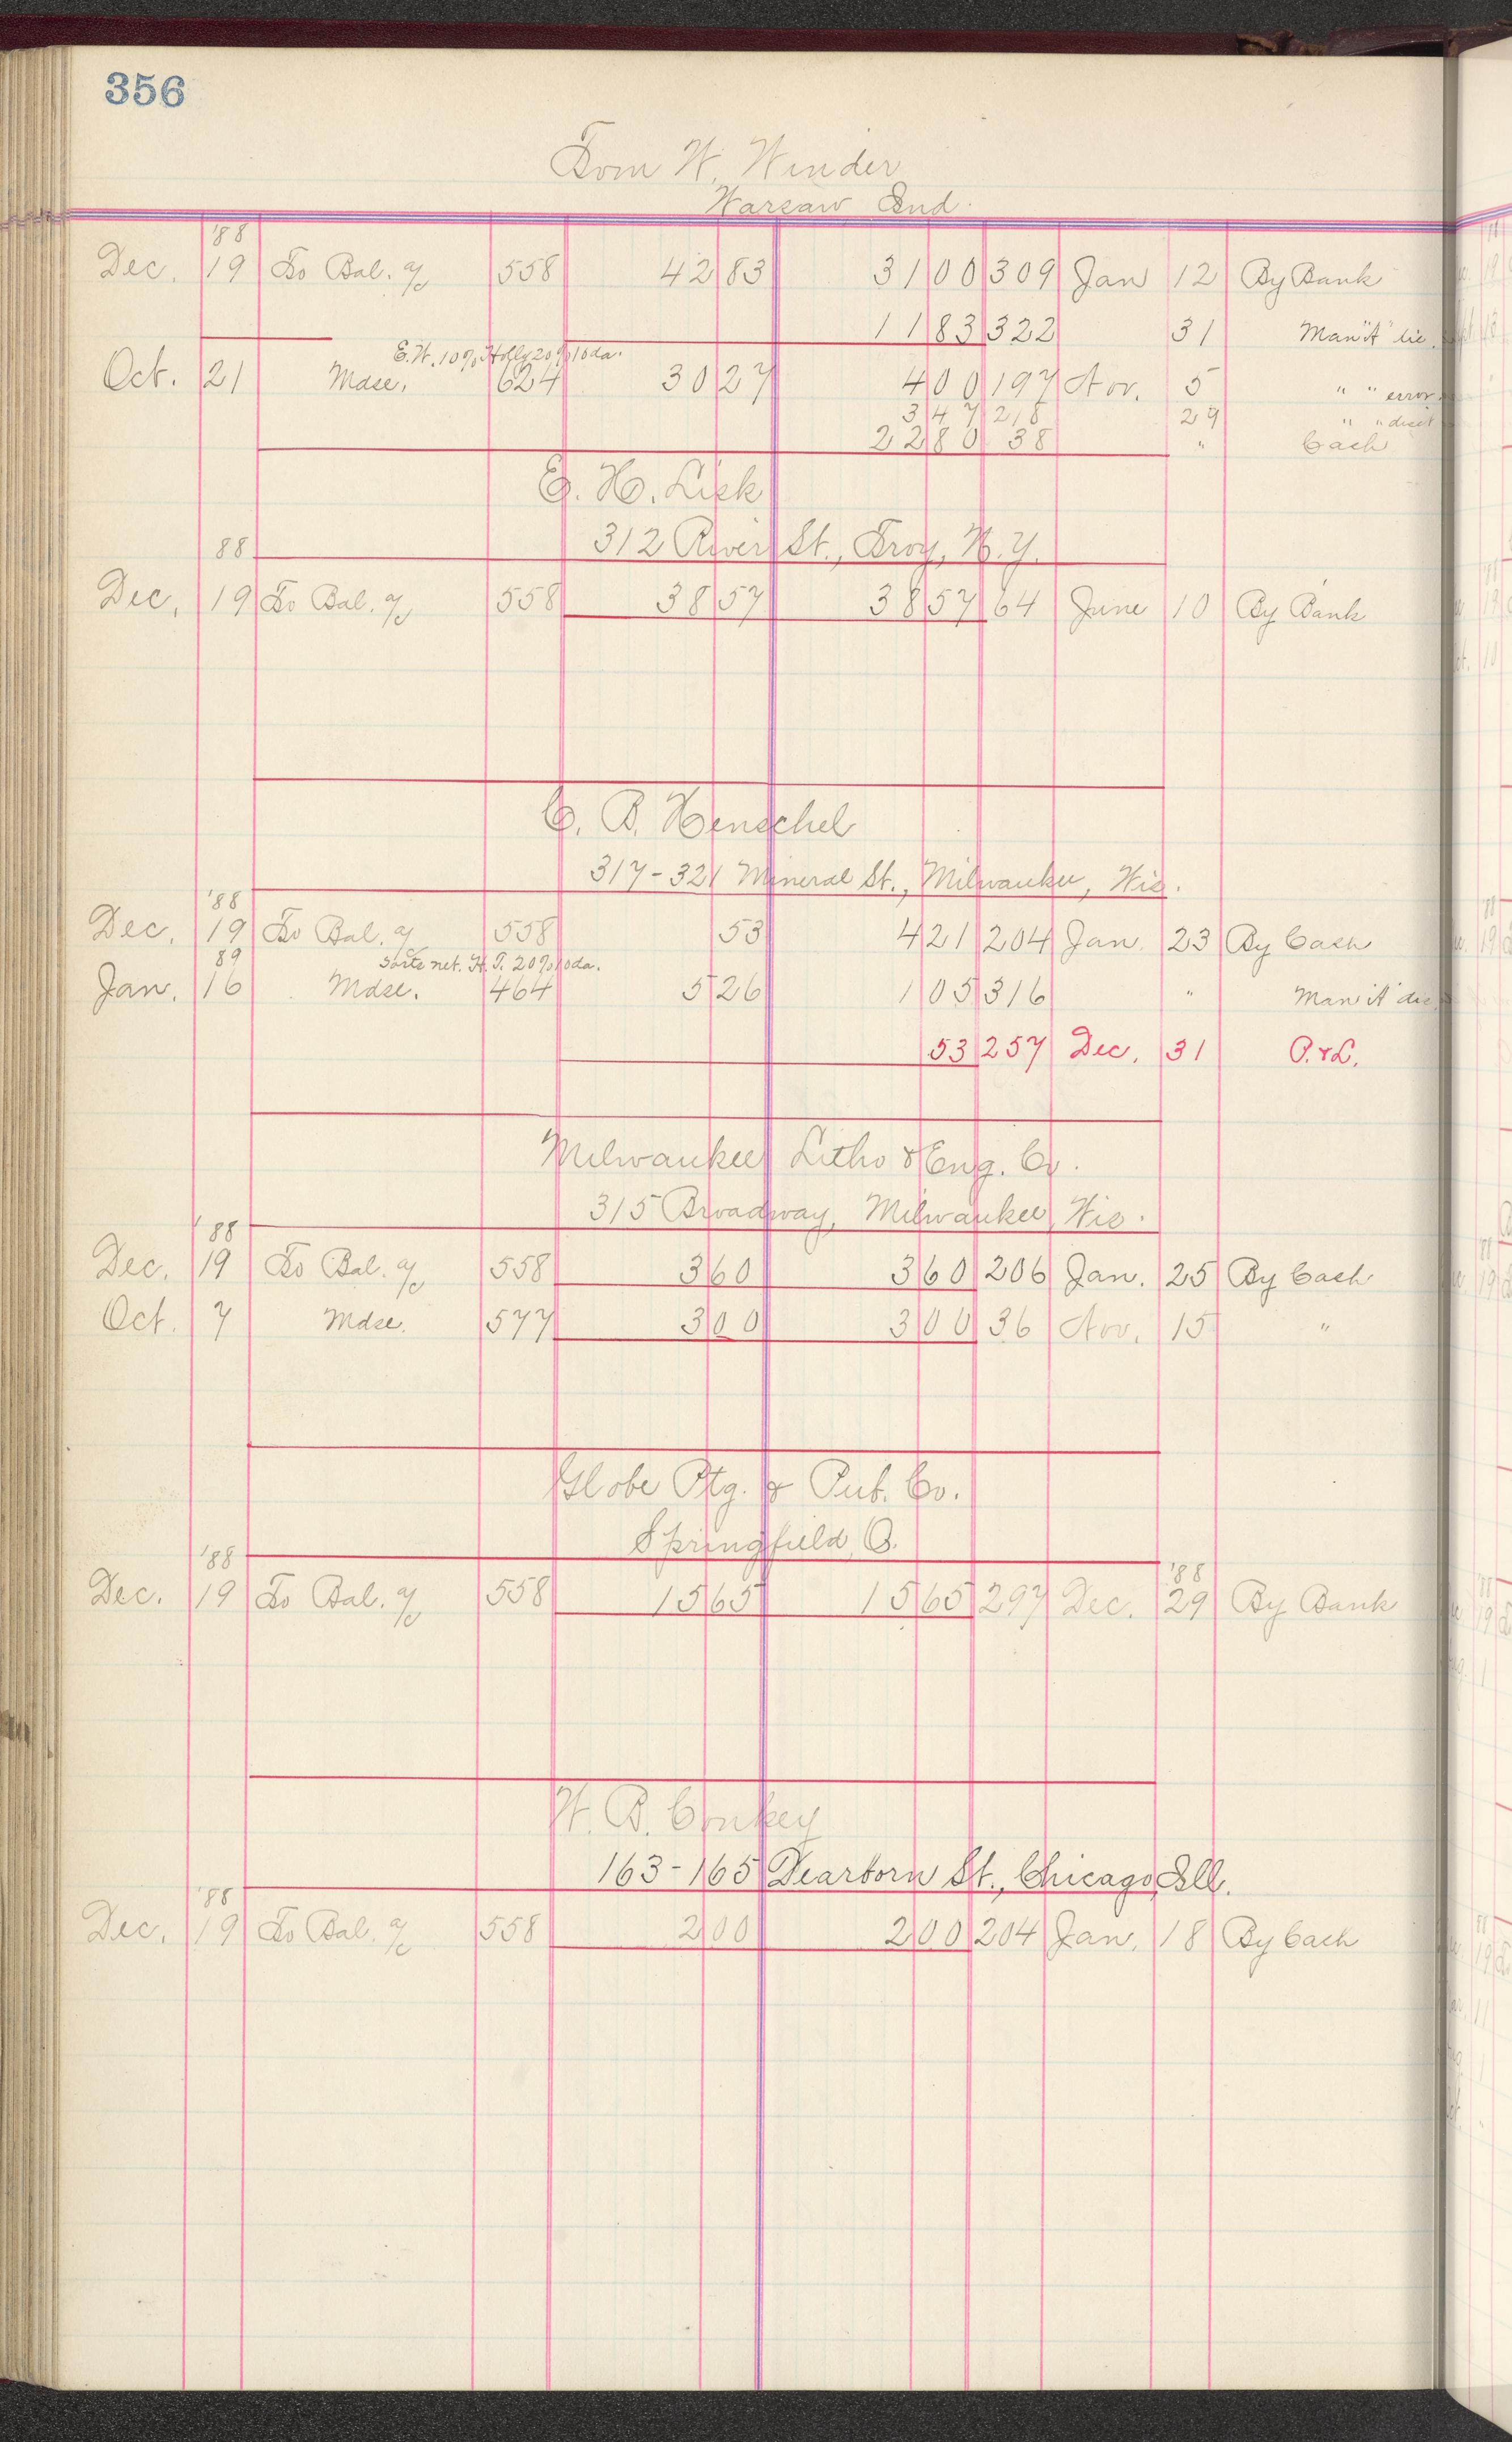 356
Tom W. Winder
Warsaw Ind.
'88
Dec. 19 To Bal. a/c 558 42 83 31 00 309 Jan 12 By Bank
11 83 322 31 Man "A" dis.
E.W. 10% Holly 20% 10da.
Oct. 21 Mdse. 624 30 27 4 00 197 Nov. 5 " " error
3 47 218 29 " " disct
22 80 38 " Cash
E. H. Lisk
312 River St., Troy, N.Y.
88
Dec. 19 To Bal. a/c 558 38 57 38 57 64 June 10 By Bank
C. B. Henschel
317-321 Mineral St., Milwaukee, Wis.
'88
Dec. 19 To Bal. a/c 558 53 4 21 204 Jan. 23 By Cash
89 net. H.T. 20% 10da.
Jan. 16 Mdse. 464 5 26 1 05 316 " Man "A" dis
53 257 Dec. 31 P. & L.
Milwaukee Litho & Eng. Co.
315 Broadway, Milwaukee, Wis.
'88
Dec. 19 To Bal. a/c 558 3 60 3 60 206 Jan. 25 By Cash
Oct. 7 Mdse. 577 3 00 3 00 36 Nov. 15 "
Globe Ptg. & Pub. Co.
Springfield, O.
'88 '88
Dec. 19 To Bal. a/c 558 15 65 15 65 297 Dec. 29 By Bank
W. B. Conkey
163-165 Dearborn St., Chicago, Ill.
'88
Dec. 19 To Bal. a/c 558 2 00 2 00 204 Jan. 18 By Cash